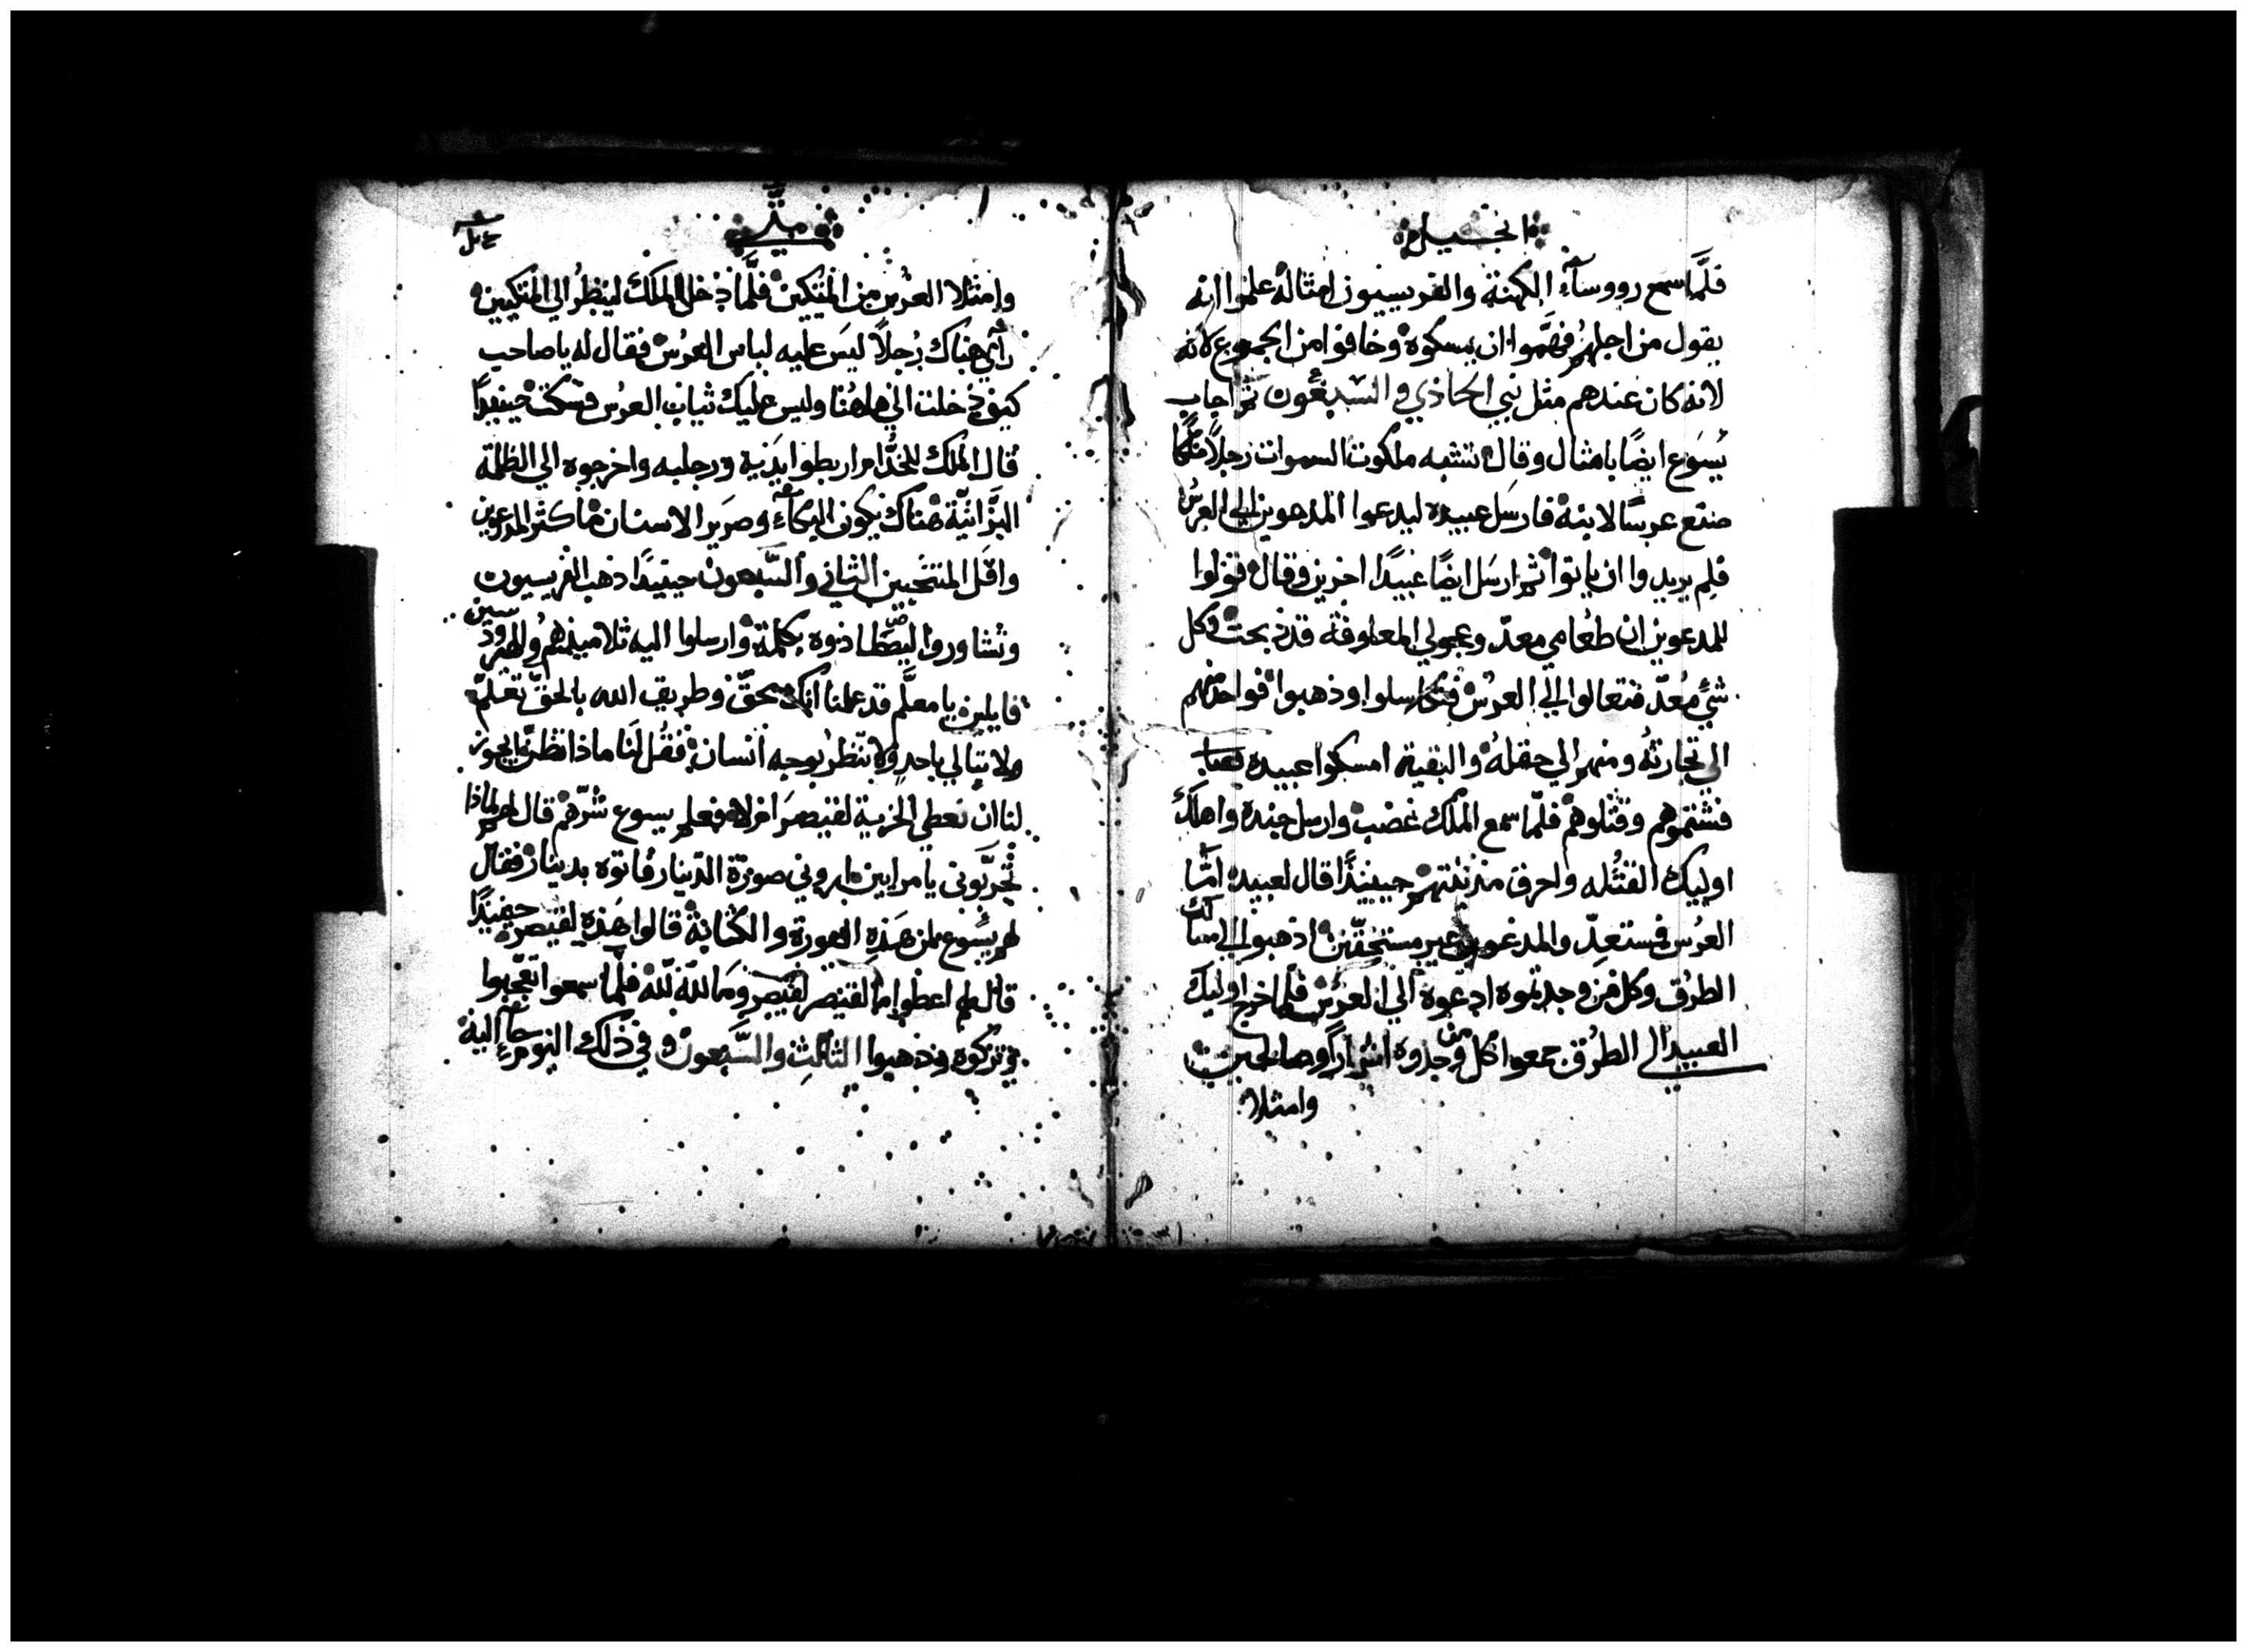 انجيل
فلمّا سمع رووسآء الكهنة والفريسيون امثاله علموا انه
يقول من اجلهم فهمّوا ان يمسكوه وخافوا من الجموع لانه
لانه كان عندهم مثل نبي الحاذي والسبعون ثم اجاب
يسوع ايضًا بامثال وقال تشبه ملكوت السموات رجلاً ملكًا
صنع عرسًا لابنه فارسل عبيده ليدعوا المدعوين الي العرس
فلم يريدوا ان ياتوا ثم ارسل ايضًا عبيدًا اخرين وقال قولوا
للمدعوين ان طعامي معدّ وعجولي المعلوفة قد ذبحت وكل
شيء معدّ فتعالوا الي العرس فتكاسلوا وذهبوا فواحد منهم
الي تجارته ومنهم الي حقله والبقية امسكوا عبيده
فشتموهم وقتلوهم فلمّا سمع الملك غضب وارسل جنده واهلك
اوليك القتله واحرق مدينتهم حينيذًا قال لعبيده امّا
العرس فمستعدّ والمدعوين غير مستحقّين اذهبوا الي مسالك
الطرق وكل من وجدتموه ادعوه الي العرس فلما خرج اوليك
العبيد الي الطرق جمعوا كل من وجدوه اشرارًا وصالحين
وامتلا
متّي
وامتلا العرس من المتكيين فلمّا دخل الملك لينظر الي المتكيين
راي هناك رجلاً ليس عليه لباس العرس فقال له يا صاحب
كيف دخلت الي هاهنا وليس عليك ثياب العرس فسكت حينيذًا
قال الملك للخدّام اربطوا يديه ورجليه واخرجوه الي الظلمة
البرّانيّة هناك يكون البكآء وصرير الاسنان ما اكثر المدعوين
واقل المنتخبين الثاني والسّبعون حينيذًا ذهب الفريسيون
وتشاوروا ليصطادوه بكلمة وارسلوا اليه تلاميذهم والهيرودسين
قايلين يا معلّم قد علمنا انك محقّ وطريق الله بالحقّ تعلّم
ولا تبالي باحد ولا تنظر بوجه انسان فقل لنا ماذا تظن ايجوز
لنا ان نعطي الجزية لقيصر ام لا فعلم يسوع شرّهم قال لهم لماذا
تجرّبوني يا مرايين اروني صورة الدينار فاتوه بدينار فقال
لهم يسوع لمن هذه الصورة والكتابة قالوا هذه لقيصر حينيذًا
قال لهم اعطوا ما لقيصر لقيصر وما للّه للّه فلمّا سمعوا تعجّبوا
وتركوه وذهبوا الثالث والسّبعون وفي ذلك اليوم جآء اليه